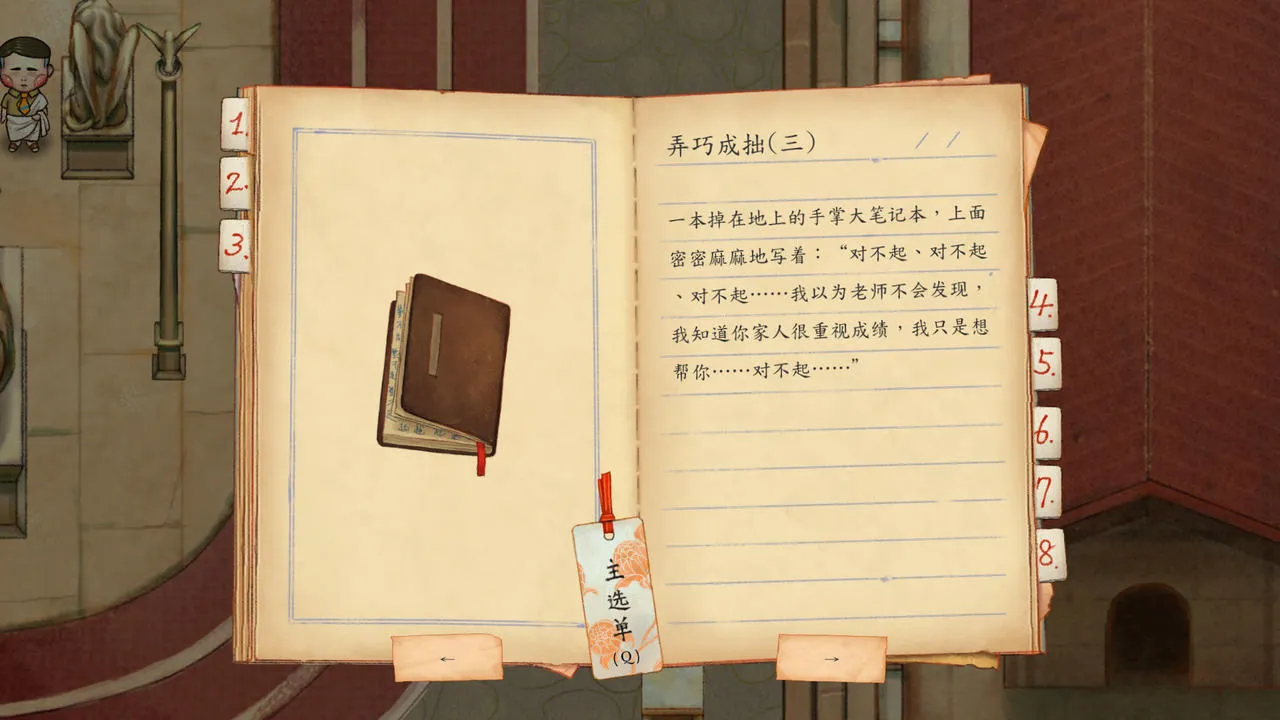 1.
2.
3.
弄巧成拙(三)
/ /
一本掉在地上的手掌大笔记本，上面
密密麻麻地写着：“对不起、对不起
、对不起……我以为老师不会发现，
我知道你家人很重视成绩，我只是想
帮你……对不起……”
4.
5.
6.
7.
8.
主选单
(Q)
←
→